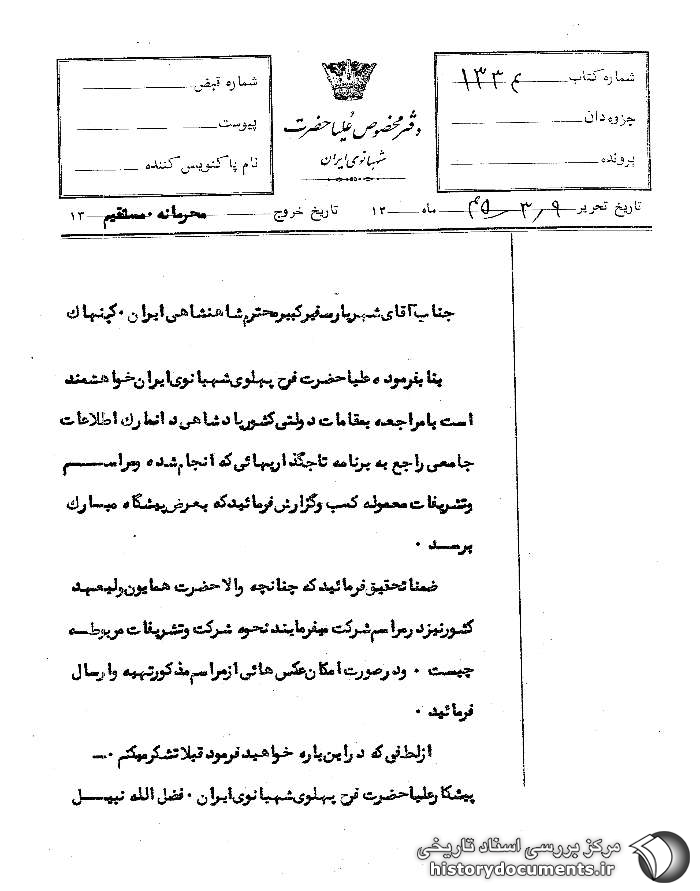 شماره کتاب ۱۳۳۴
جزوه‌دان
پرونده
دفتر مخصوص علیاحضرت
شهبانوی ایران
شماره قبض
پیوست
نام پاکنویس کننده
تاریخ تحریر ۹ ر ۳ ر ۴۵ ماه ۱۳ تاریخ خروج محرمانه ۰ مستقیم ۱۳
جناب آقای شهریار سفیر کبیر محترم شاهنشاهی ایران ۰ کپنهاك
بنا بفرموده علیاحضرت فرح پهلوی شهبانوی ایران خواهشمند
است با مراجعه بمقامات دولتی کشور پادشاهی دانمارك اطلاعات
جامعی راجع به برنامه تاجگذاریهائی که انجام شده ومراسم
وتشریفات معموله کسب وگزارش فرمائید که بعرض پیشگاه مبارك
برسد ۰
ضمنا تحقیق فرمائید که چنانچه والاحضرت همایون ولیعهد
کشور نیز در مراسم شرکت میفرمایند نحوه شرکت وتشریفات مربوطه
چیست ۰ ودر صورت امکان عکس هائی از مراسم مذکور تهیه وارسال
فرمائید ۰
از لطفی که در این باره خواهید فرمود قبلا تشکر میکنم ۰
پیشکار علیاحضرت فرح پهلوی شهبانوی ایران ۰ فضل الله نبیل
مرکز بررسی اسناد تاریخی
historydocuments.ir